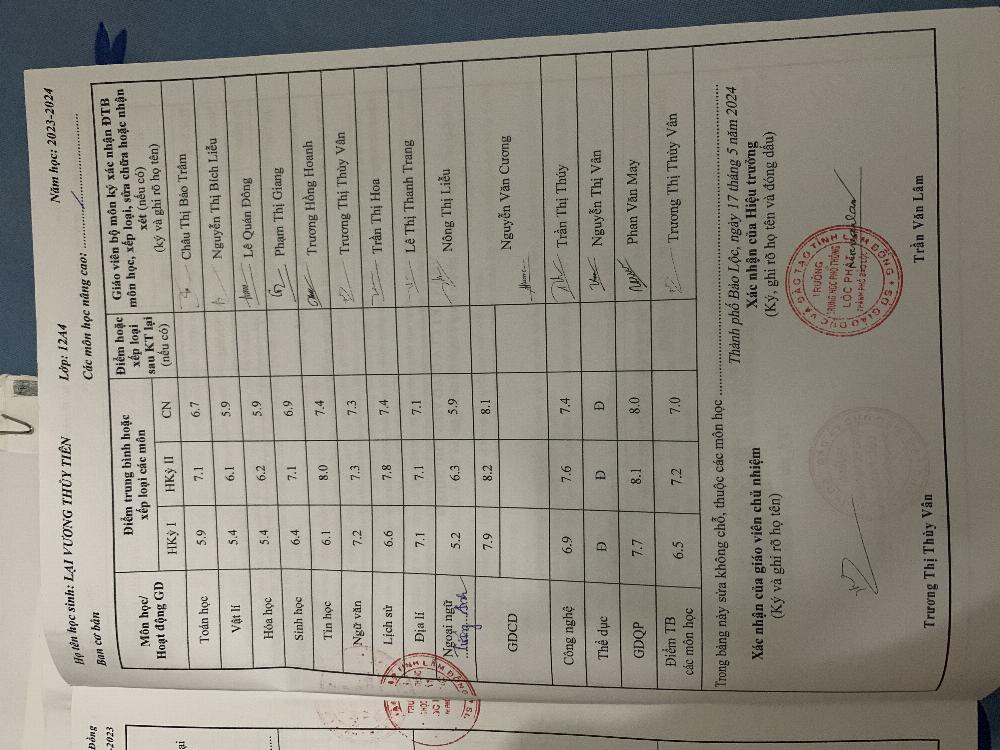 Họ tên học sinh: LẠI VƯƠNG THỦY TIÊN Lớp: 12A4 Năm học: 2023-2024
Ban cơ bản Các môn học nâng cao:
Môn học/ Hoạt động GD Điểm trung bình hoặc xếp loại các môn Điểm hoặc xếp loại sau KT lại (nếu có) Giáo viên bộ môn ký xác nhận ĐTB môn học, xếp loại, sửa chữa hoặc nhận xét (nếu có) (ký và ghi rõ họ tên)
HKỳ I HKỳ II CN
Toán học 5.9 7.1 6.7 Châu Thị Bảo Trâm
Vật lí 5.4 6.1 5.9 Nguyễn Thị Bích Liễu
Hóa học 5.4 6.2 5.9 Lê Quán Đông
Sinh học 6.4 7.1 6.9 Phạm Thị Giang
Tin học 6.1 8.0 7.4 Trương Hồng Hoanh
Ngữ văn 7.2 7.3 7.3 Trương Thị Thủy Vân
Lịch sử 6.6 7.8 7.4 Trần Thị Hoa
Địa lí 7.1 7.1 7.1 Lê Thị Thanh Trang
Ngoại ngữ 5.2 6.3 5.9 Nông Thị Liễu
Tiếng Anh
GDCD 7.9 8.2 8.1 Nguyễn Văn Cương
Công nghệ 6.9 7.6 7.4 Trần Thị Thúy
Thể dục Đ Đ Đ Nguyễn Thị Vân
GDQP 7.7 8.1 8.0 Phan Văn May
Điểm TB các môn học 6.5 7.2 7.0 Trương Thị Thủy Vân
Trong bảng này sửa không chỗ, thuộc các môn học
Thành phố Bảo Lộc, ngày 17 tháng 5 năm 2024
Xác nhận của giáo viên chủ nhiệm Xác nhận của Hiệu trưởng
(Ký và ghi rõ họ tên) (Ký, ghi rõ họ tên và đóng dấu)
SỞ GIÁO DỤC VÀ ĐÀO TẠO TỈNH LÂM ĐỒNG
TRƯỜNG
TRUNG HỌC PHỔ THÔNG
LỘC PHÁT
THÀNH PHỐ BẢO LỘC
Trương Thị Thủy Vân Trần Văn Lâm